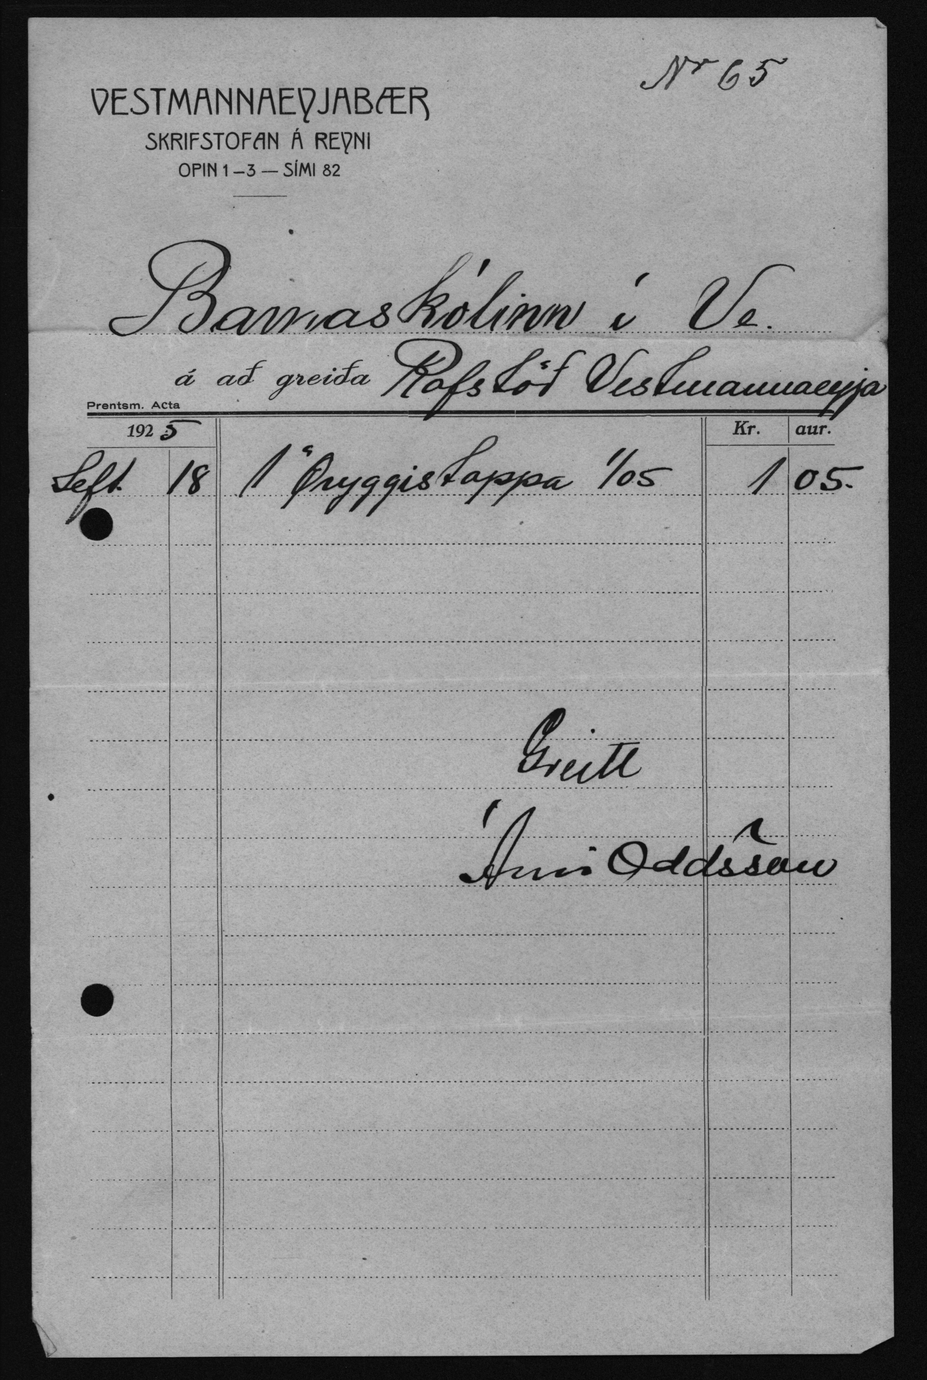 Nr 65
VESTMANNAEYJABÆR
SKRIFSTOFAN Á REYNI
OPIN 1–3 — SÍMI 82
Barnaskólinn í Ve.
á að greiða Rafstöð Vestmannaeyja
Prentsm. Acta
1925 Kr. aur.
Sept. 18 1 Öryggistappa 1/05 1 05.
Greitt
Árni Oddsson